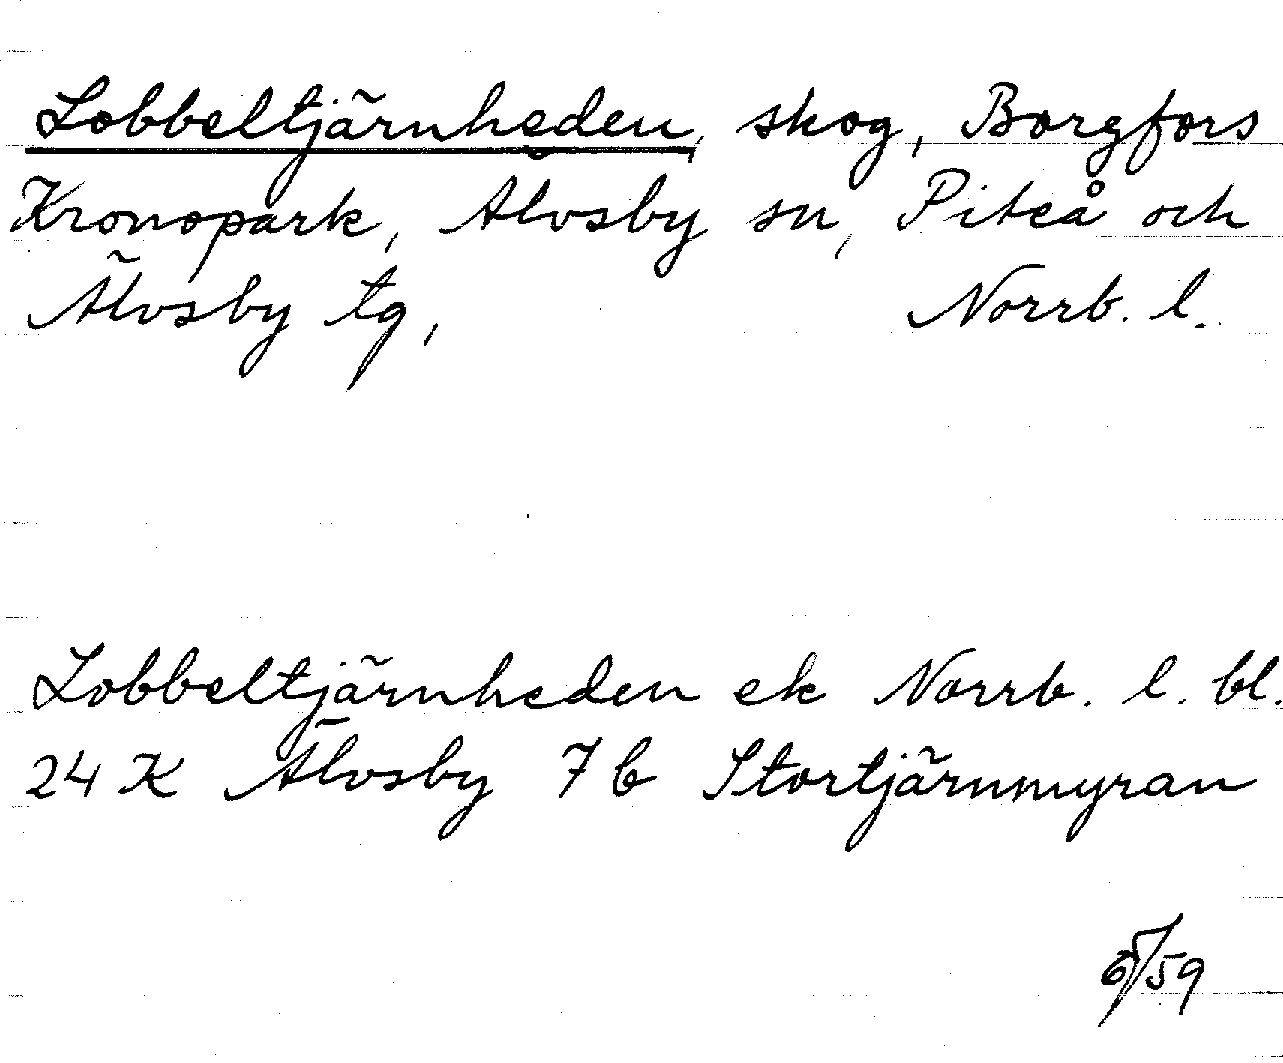 Lobbeltjärnheden, skog, Borgfors
Kronopark, Älvsby sn, Piteå och
Älvsby tg, Norrb. l.
Lobbeltjärnheden ek Norrb. l. bl.
24 K Älvsby 7 b Stortjärnmyran